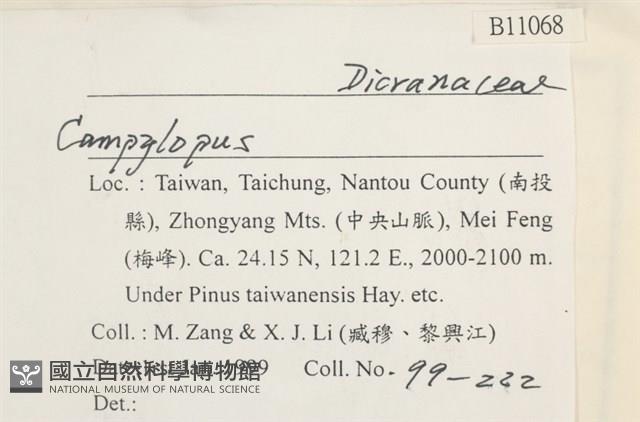 B11068
Dicranaceae
Campylopus
Loc. : Taiwan, Taichung, Nantou County (南投
縣), Zhongyang Mts. (中央山脈), Mei Feng
(梅峰). Ca. 24.15 N, 121.2 E., 2000-2100 m.
Under Pinus taiwanensis Hay. etc.
Coll. : M. Zang & X. J. Li (臧穆、黎興江)
1999 Coll. No. 99-222
國立自然科學博物館
NATIONAL MUSEUM OF NATURAL SCIENCE
Det.: